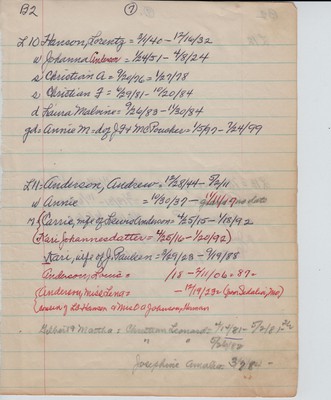 B2 7
L10 Hanson, Lorentz = 9/1/40 - 12/16/32
w Johanna Anderson = 1/24/51 - 4/8/24
s Christian A = 9/20/76 = 1/27/78
s Christian F = 6/29/81 - 10/20/84
d Laura Malvina = 9/26/83 - 11/30/84
gd = Annie M = d of J F & M - 7/24/99
L11 = Anderson, Andrew = 12/28/44 - 5/2/11
w Annie = 10/30/37 - 11/21/17 no date
m { Carrie, wife of Lewis Anderson = 4/25/15 - 1/18/92
(Kari Johannesdatter = 4/25/16 - 1/20/92)
Kari, wife of J. Paulsen = 2/29/23 - 9/19/88
Anderson, Louis = /18 - 9/11/06 = 87 -
(Anderson, Miss Lena = - 12/19/23 = (from Sedalia, Mo)
(cousin of L.O. Hanson & Mrs O A Johnson, )
Martha = Christian Leonard = 4/14/81 -
" "
Josephine Amalia